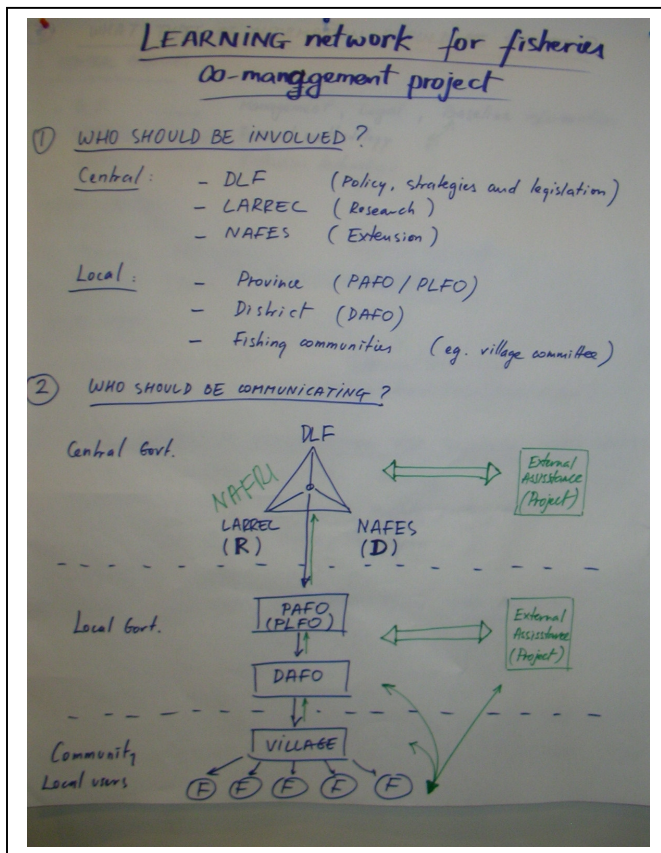 LEARNING network for fisheries
co-management project
① WHO SHOULD BE INVOLVED?
Central: - DLF (Policy, strategies and legislation)
- LARREC (Research)
- NAFES (Extension)
Local: - Province (PAFO/PLFO)
- District (DAFO)
- Fishing communities (eg. village committee)
② WHO SHOULD BE COMMUNICATING?
Central Govt.
DLF
NAFRI
LARREC
(R)
NAFES
(D)
External
Assistance
(Project)
Local Govt.
PAFO
(PLFO)
External
Assisstance
(Project)
DAFO
Community
Local users
VILLAGE
F F F F F